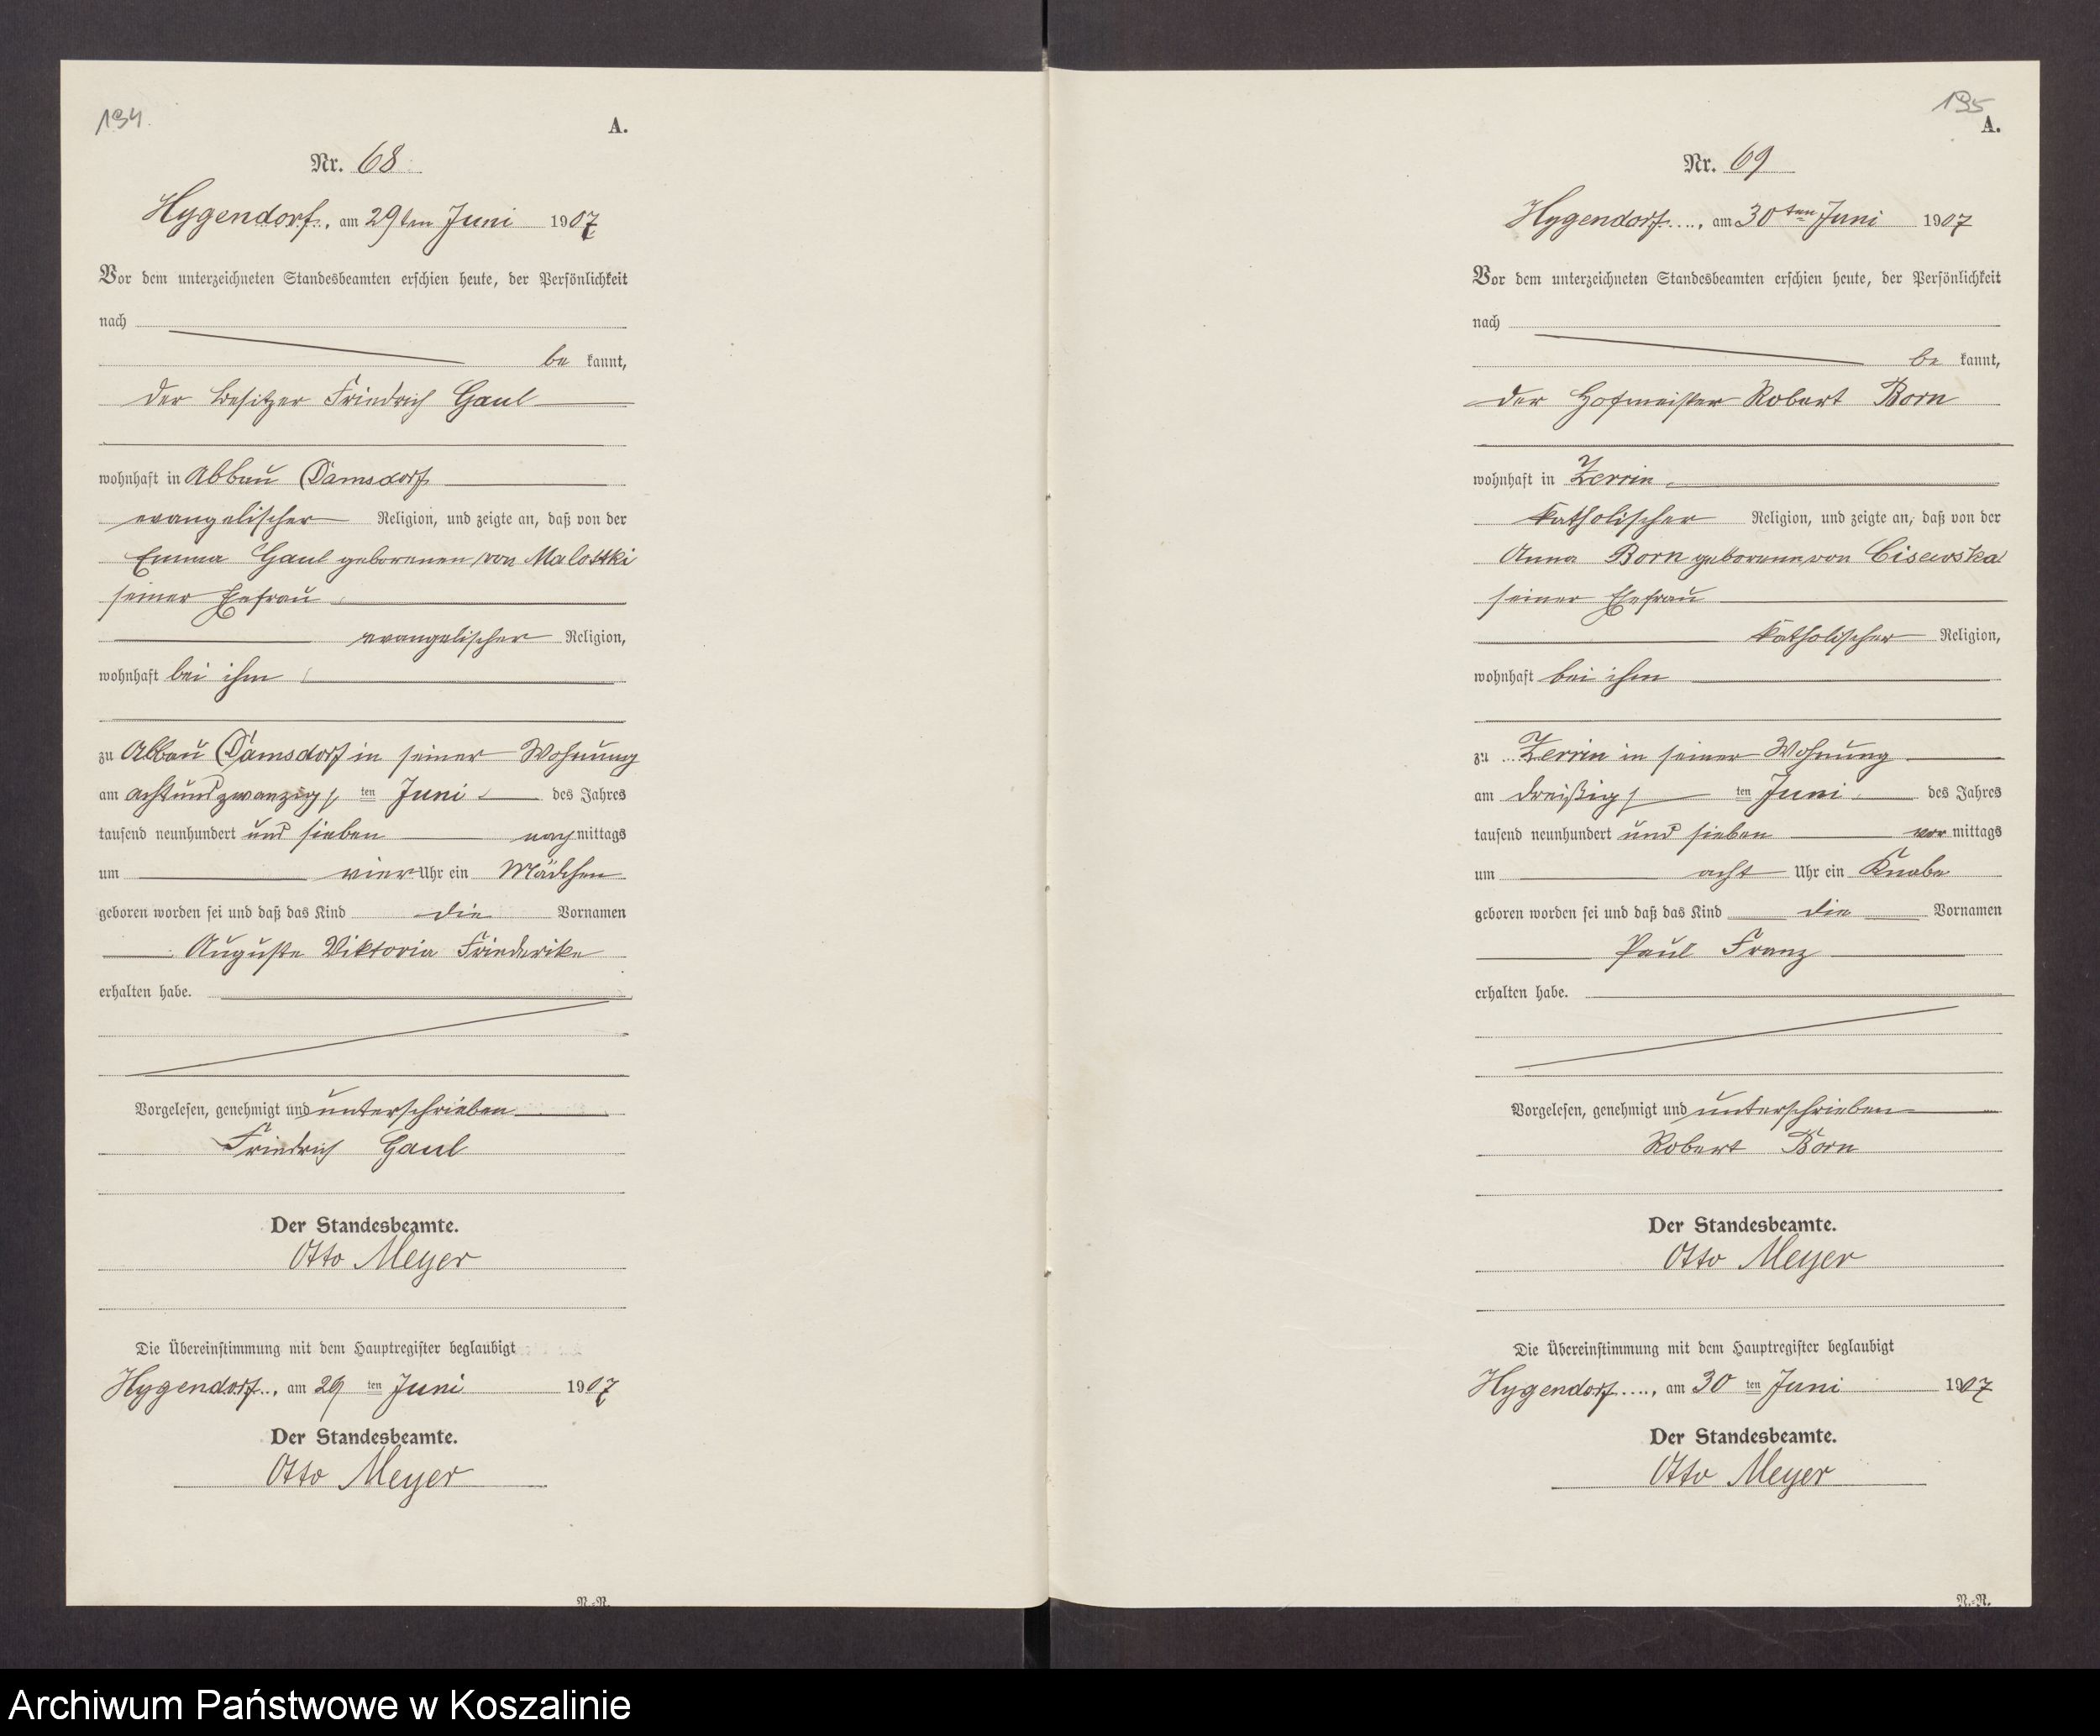 194.
A.
Nr. 68
Hygendorf, am 29ten Juni 1907
Vor dem unterzeichneten Standesbeamten erschien heute, der Persönlichkeit
nach
be kannt,
der Besitzer Friedrich Gaul
wohnhaft in Abbau Damsdorf
evangelischer Religion, und zeigte an, daß von der
Emma Gaul geborenen von Malottki
seiner Ehefrau
evangelischer Religion,
wohnhaft bei ihm
zu Abbau Damsdorf in seiner Wohnung
am achtundzwanzig ten Juni des Jahres
tausend neunhundert und sieben nach mittags
um vier Uhr ein Mädchen
geboren worden sei und daß das Kind die Vornamen
Auguste Viktoria Friederike
erhalten habe.
Vorgelesen, genehmigt und unterschrieben
Friedrich Gaul
Der Standesbeamte.
Otto Meyer
Die Übereinstimmung mit dem Hauptregister beglaubigt
Hygendorf, am 29 ten Juni 1907
Der Standesbeamte.
Otto Meyer
N.-N.
195
A.
Nr. 69
Hygendorf, am 30ten Juni 1907
Vor dem unterzeichneten Standesbeamten erschien heute, der Persönlichkeit
nach
be kannt,
der Hofmeister Robert Born
wohnhaft in Zerrin
katholischer Religion, und zeigte an, daß von der
Anna Born geborene von Cisewska
seiner Ehefrau
katholischer Religion,
wohnhaft bei ihm
zu Zerrin in seiner Wohnung
am dreißig ten Juni des Jahres
tausend neunhundert und sieben vor mittags
um acht Uhr ein Knabe
geboren worden sei und daß das Kind die Vornamen
Paul Franz
erhalten habe.
Vorgelesen, genehmigt und unterschrieben
Robert Born
Der Standesbeamte.
Otto Meyer
Die Übereinstimmung mit dem Hauptregister beglaubigt
Hygendorf, am 30 ten Juni 1907
Der Standesbeamte.
Otto Meyer
N.-N.
Archiwum Państwowe w Koszalinie